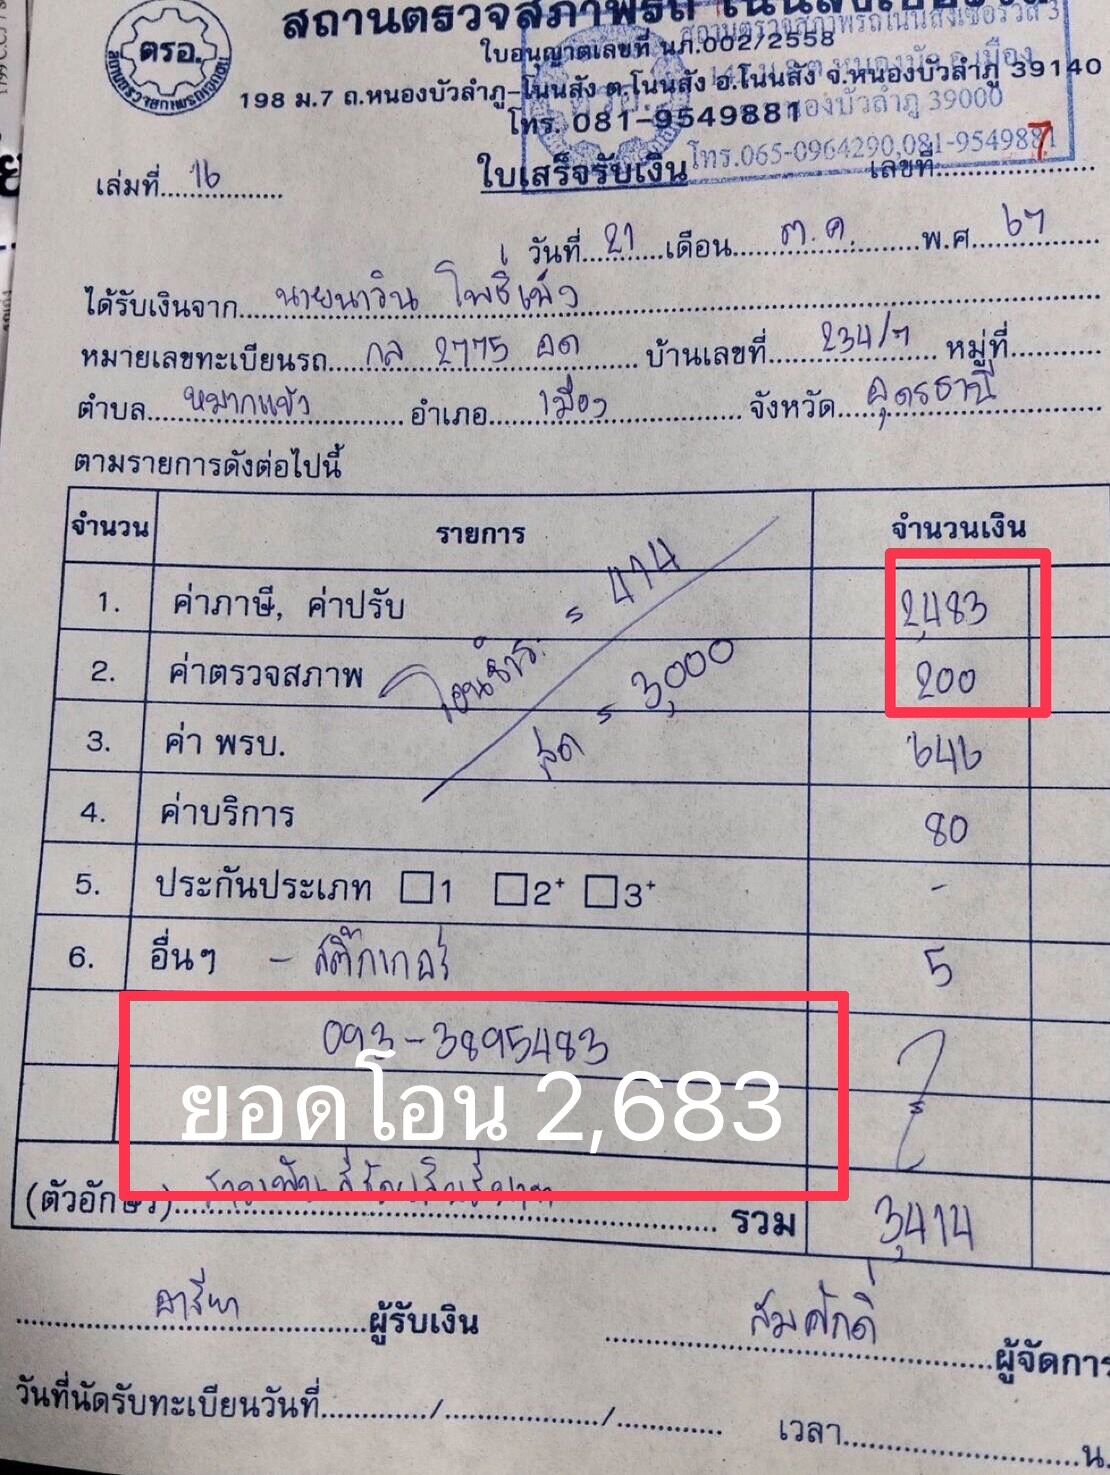 สถานตรวจสภาพรถ โนนสังเซอร์วิส
ตรอ.
ใบอนุญาตเลขที่ นภ.002/2558
198 ม.7 ถ.หนองบัวลำภู-โนนสัง ต.โนนสัง อ.โนนสัง จ.หนองบัวลำภู 39140
โทร. 081-9549881
สถานตรวจสภาพรถโนนสังเซอร์วิส 3
อ.เมือง
หนองบัวลำภู 39000
โทร.065-0964290,081-9549881
เล่มที่ 16 ใบเสร็จรับเงิน เลขที่ 7
วันที่ 21 เดือน ต.ค. พ.ศ. 67
ได้รับเงินจาก นายนาวิน โพธิ์เพ็ง
หมายเลขทะเบียนรถ กล 2775 อด บ้านเลขที่ 234/7 หมู่ที่
ตำบล หมากแข้ง อำเภอ เมือง จังหวัด อุดรธานี
ตามรายการดังต่อไปนี้
จำนวน รายการ จำนวนเงิน
1. ค่าภาษี, ค่าปรับ 2,483
2. ค่าตรวจสภาพ 200
= 414
สด = 3,000
3. ค่า พรบ. 646
4. ค่าบริการ 80
5. ประกันประเภท 1 2+ 3+ -
6. อื่นๆ - สติ๊กเกอร์ 5
093-3895483
ยอดโอน 2,683
(ตัวอักษร) รวม 3,414
อารียา ผู้รับเงิน
สมศักดิ์ ผู้จัดการ
วันที่นัดรับทะเบียนวันที่ / / เวลา น.